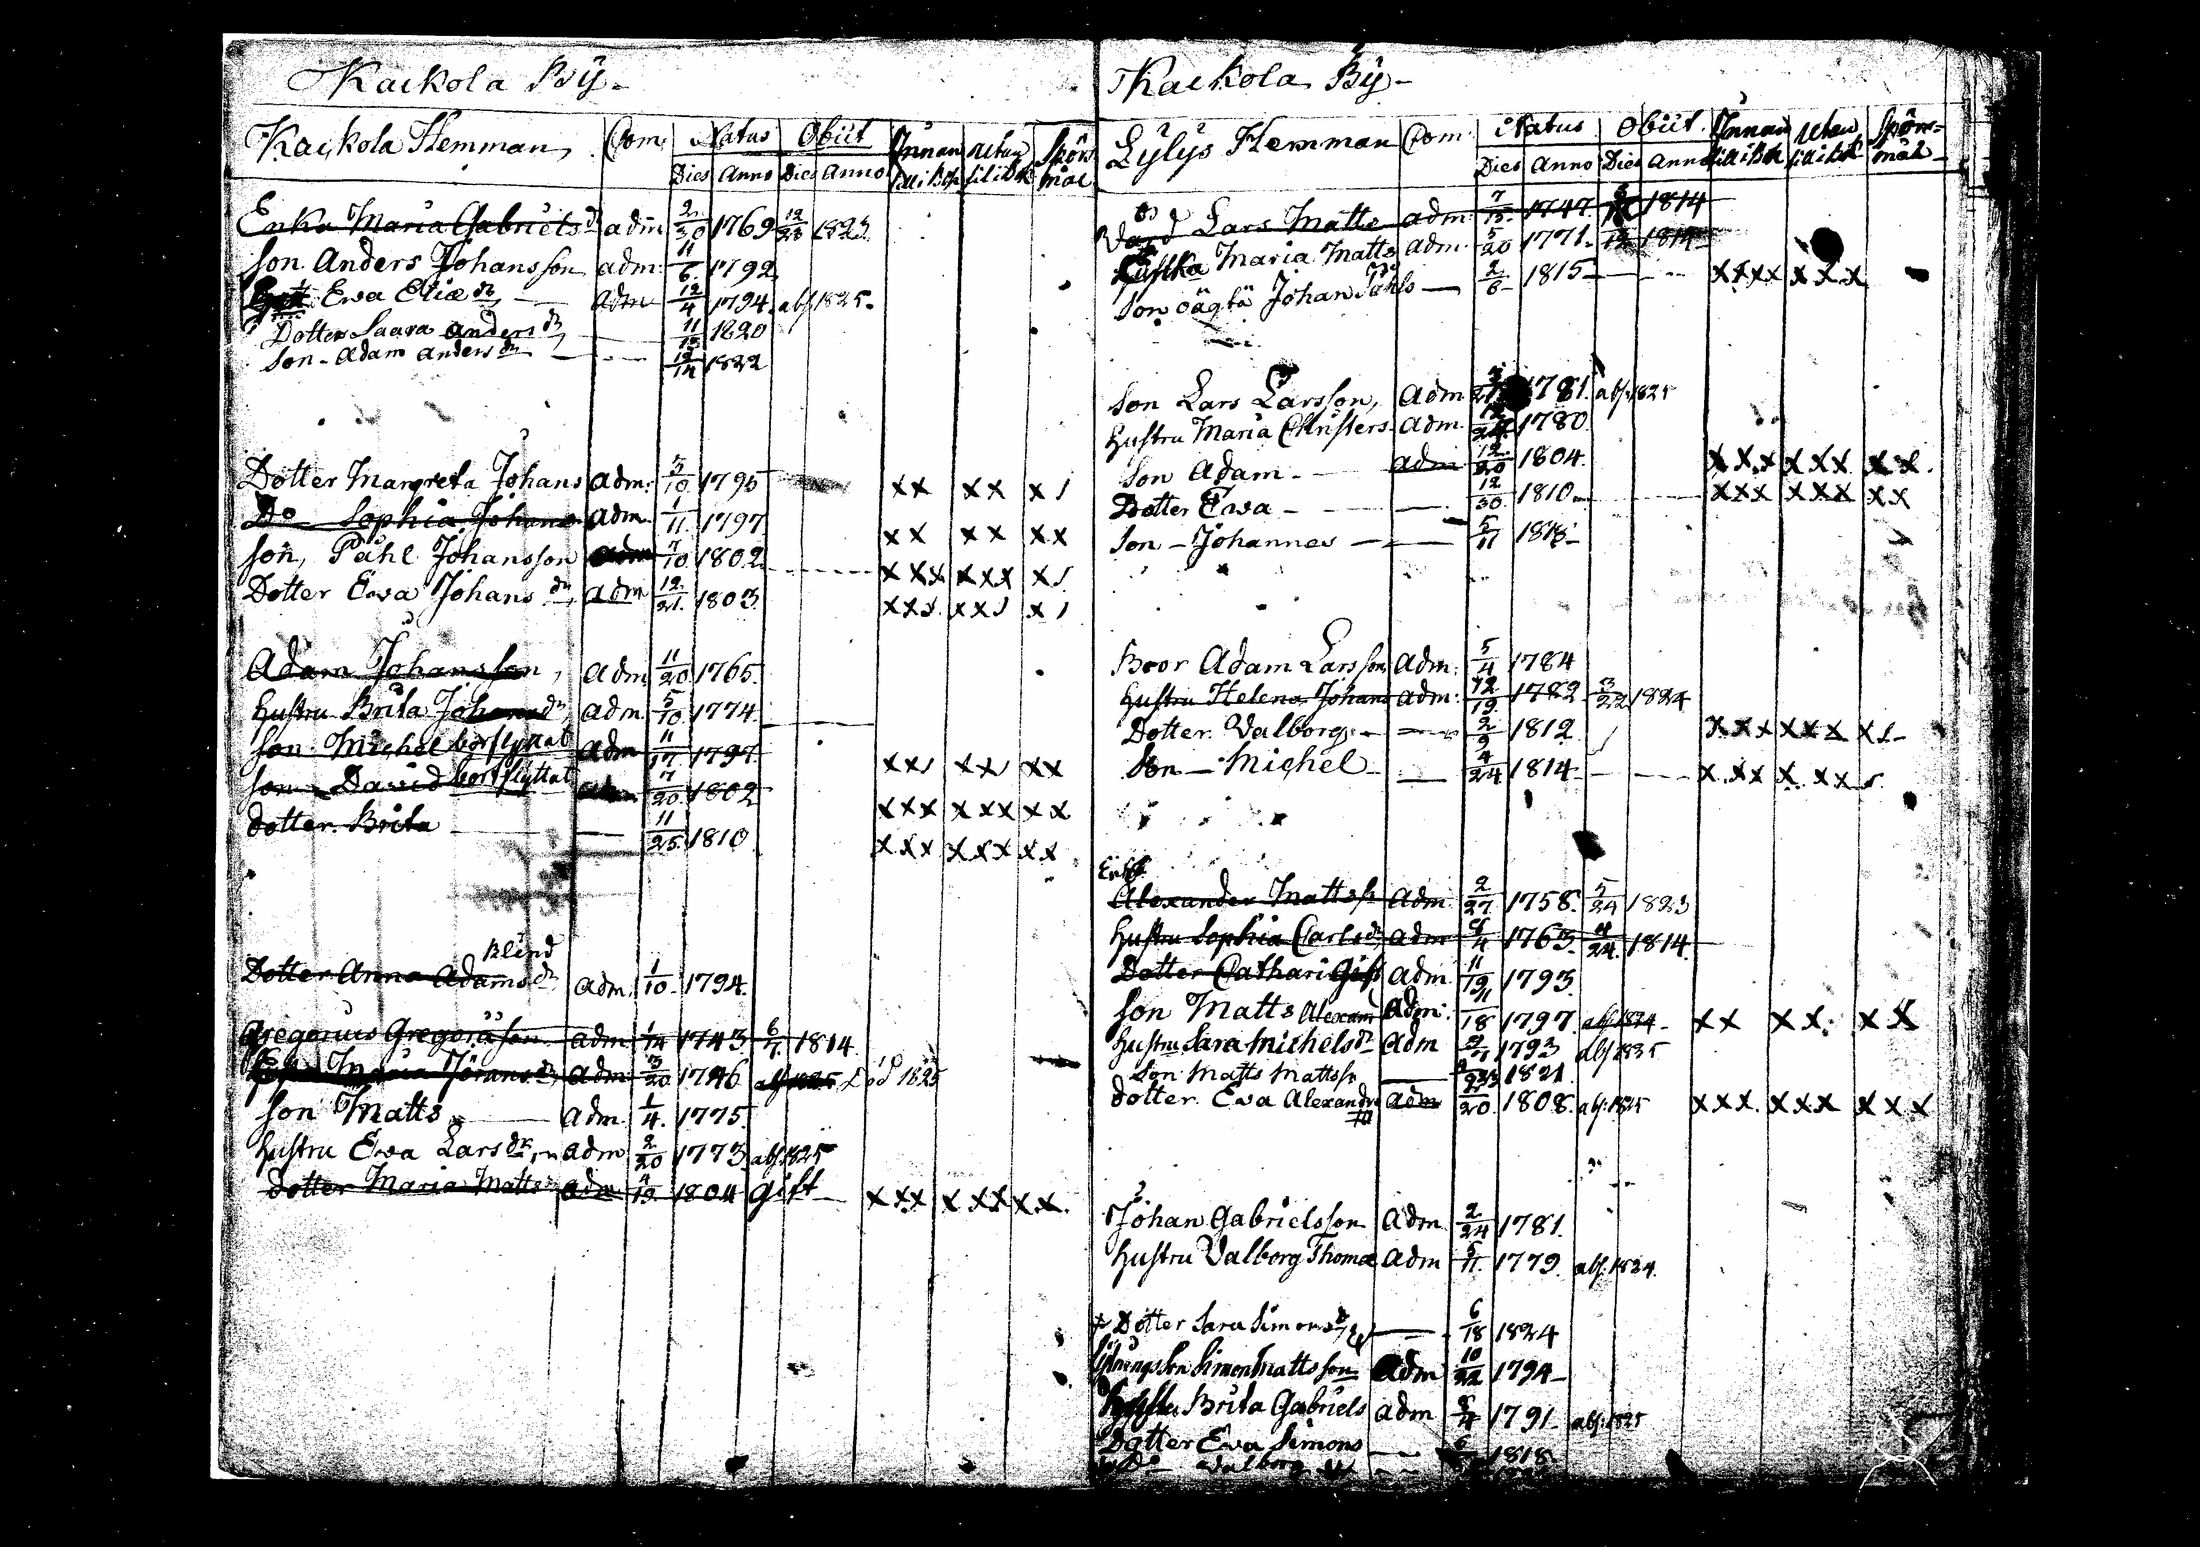 Kaikola Bÿ-
Kaikola Hemman, Com: Natus Obiit Innan utan Spörs
Dies Anno Dies Anno till Bok till Bok mål
Enka Maria Gabriels dr adm 2/30 1769 12/23 1823.
Son Anders Johansson adm: 11/6. 1792
Ewa Eliæ dr adm 12/4 1794. abs 1825.
Dotter Saara Anders dr 11/15 1820
Son - Adam Anders 12/14 1822
Dotter Margreta Johans adm: 3/10. 1795 xx xx x1
Do Sophia Johans adm. 1/11. 1797 xx xx xx
Son, Påhl Johansson adm 7/10 1802 xxx xxx x1
Dotter Ewa Johans dr, adm 12/21. 1803. xxx xx1 x1
Adam Johansson, adm. 11/20 1765.
Hustru Brita Johans dr, adm. 5/10 1774
Son Michel bortflyttat adm 11/17 1797 xx1 xx1 xx
Son David bortflyttat adm 7/20. 1802 xxx xxx xx
dotter Brita 11/25. 1810 xxx xxx xx
Blind
Dotter Anna Adams dr adm. 1/10 1794.
Gregorius Gregorisson adm 1/14 1743. 6/7. 1814
Maria Jörans dr, adm 3/20 1746 abs 1825 död 1825
Son Matts adm. 1/4. 1775.
Hustru Ewa Lars dr adm 2/20 1773 abs 1825
dotter Maria Matts dr adm 4/12. 1804 gift xxx xxx xx.
Kaikola Bÿ-
Lylys Hemman Com: Natus Obiit Innan utan Spörs=
Dies Anno Dies Anno till Bok till Bok mål
Lars Matts adm. 7/15. 1747. 1814
Maria Matts adm. 5/20 1771. 1814
Son oägta Johan Påhls 2/6 1815 xxxx xxx
Son Lars Larsson, adm 1781. abs: 1825
Hustru Maria Christers adm. 12/24. 1780
Son Adam - adm 12/20 1804. xxx xxx xx.
Dotter Ewa - 12/30. 1810 xxx xxx xx
Son - Johannes 5/11 1818-
Bror Adam Larsson adm: 5/4 1784
Hustru Helena Johans adm: 12/19. 1782 1824
Dotter Valborg - 2/9 1812 xxx xxx x1-
Son - Michel 4/24 1814 xxx xxx 1.
Alexander Mattss adm. 2/27 1758. 5/24 1823
Hustru Sophia Carls dr adm 1763. 4/24. 1814.
Dotter Cathari gift adm 11/19 1793
Son Matts Alexand adm: 11/18 1797 abs: 1824 xx xx. xx
Hustru Sara Michels dr adm 1793 abs 1825
Son Matts Mattss 1821.
dotter Ewa Alexandr adm 20. 1808. abs: 1825 xxx. xxx xxx
Johan Gabrielsson adm 2/24 1781.
Hustru Valborg Thomæ adm 5/11. 1779. abs: 1824.
Dotter Sara Simons 6/18 1824
Simon Mattsson adm 10/22 1794-
Brita Gabriels adm 8/4 1791- abs: 1825
Dotter Ewa Simons 1818.
Do Valborg